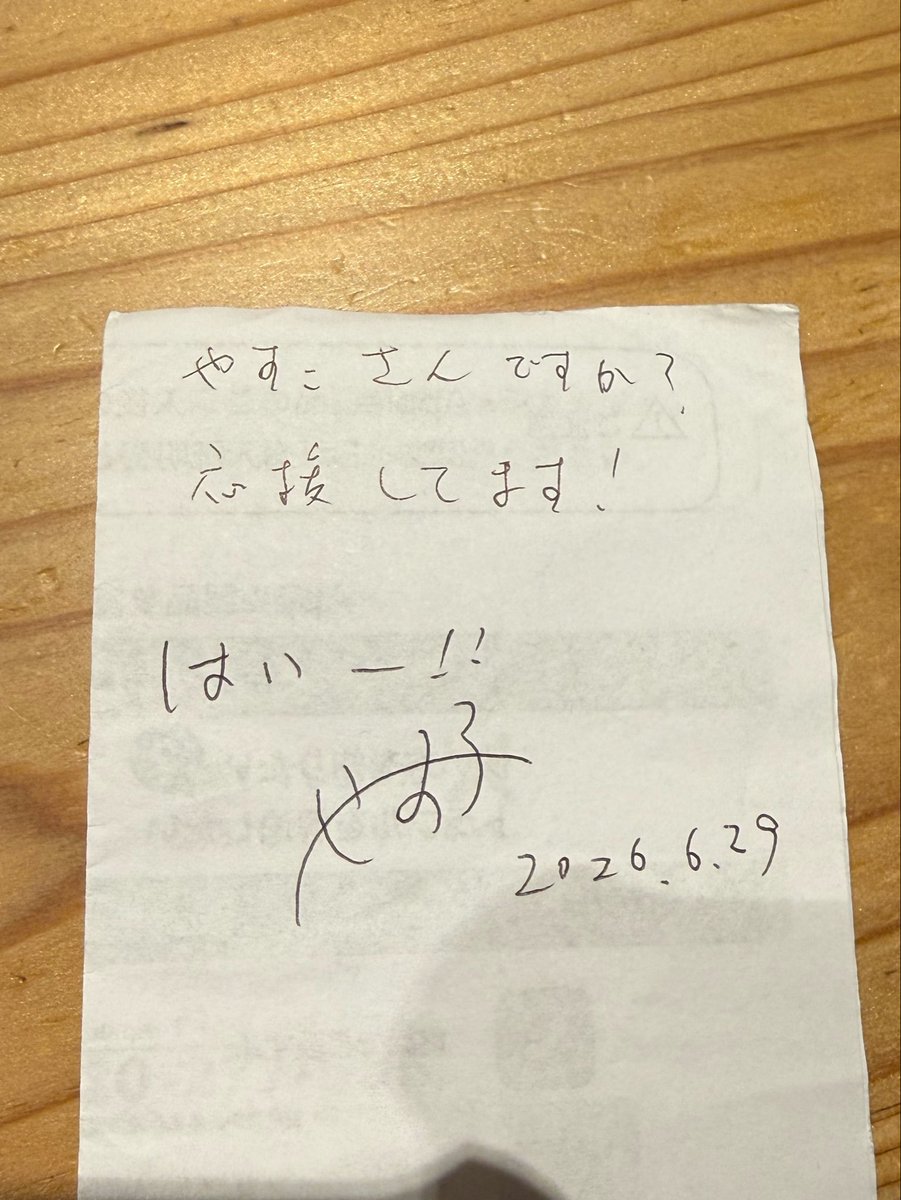 やすこさんですか?
応援してます!
はいー!!
やす子
2026.6.29